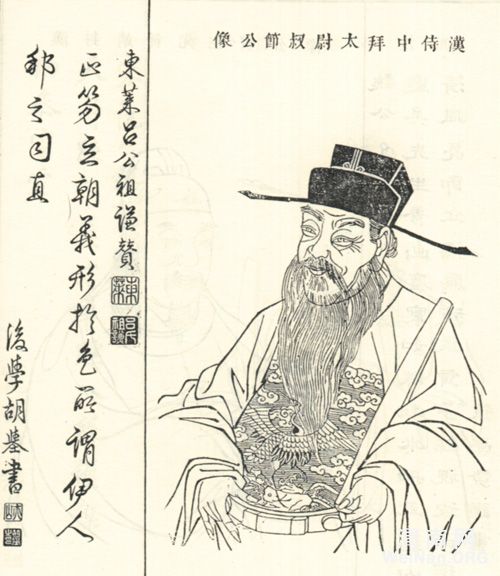 漢侍中拜太尉叔節公像
東萊呂公祖謙贊
正笏立朝義形於色所謂伊人
邦之司直
後學胡書